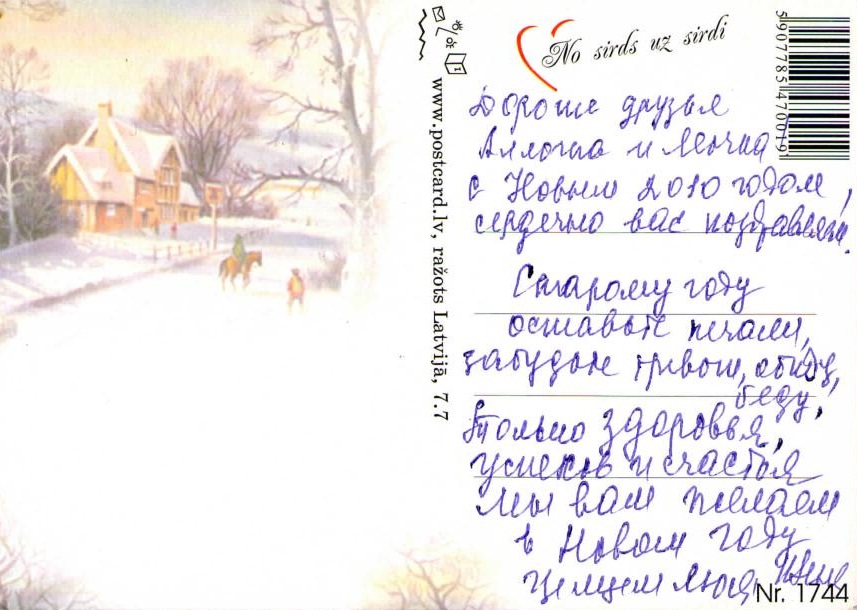 No sirds uz sirdi
5907785470019
www.postcard.lv, ražots Latvijā, 7.7
Дорогие друзья
и
с Новым 2010 годом,
сердечно вас поздравляем.
Старому году
оставьте печали,
забудьте тревоги, обиду,
беду,
Только здоровья,
успехов и счастья
мы вам желаем
в Новом году
целуем Люся
Nr. 1744